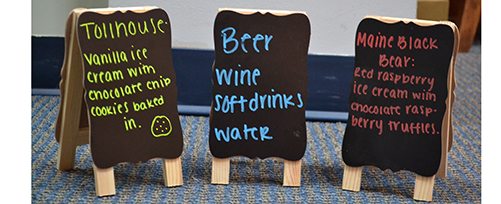 Tollhouse:
Vanilla ice
cream with
chocolate chip
cookies baked
in.
Beer
wine
softdrinks
water
Maine Black
Bear:
Red raspberry
ice cream with
chocolate rasp-
berry truffles.